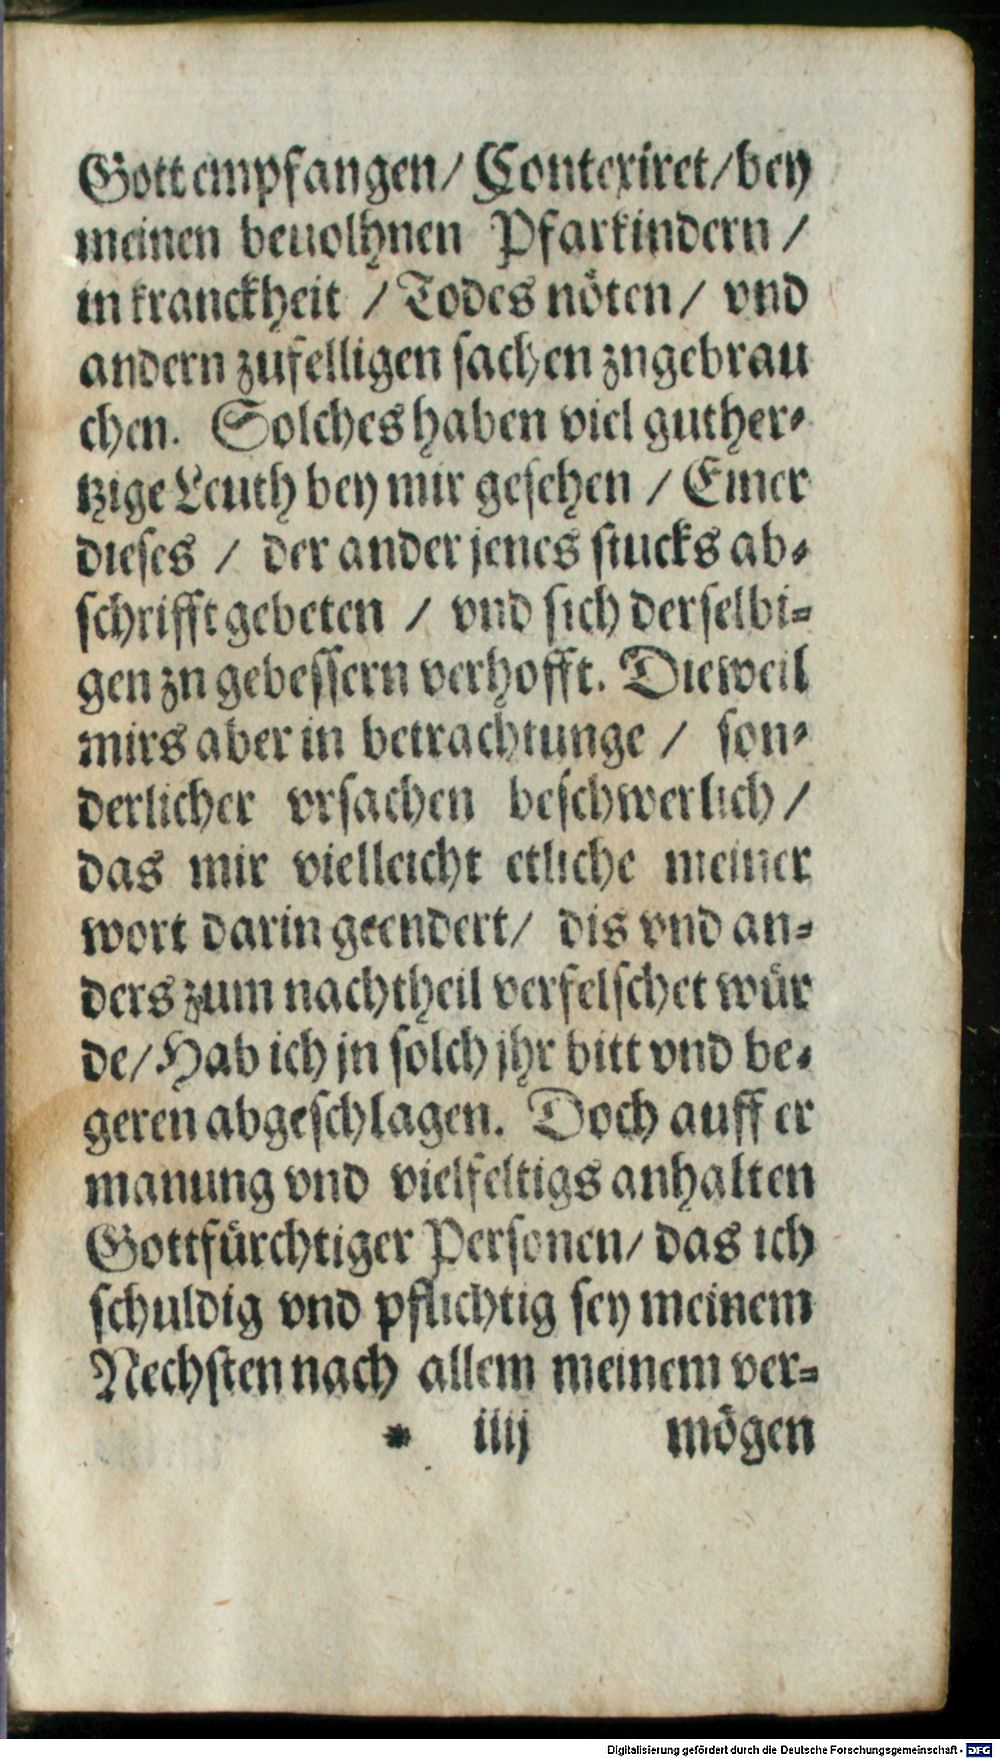 Gott empfangen/ Contexiret/bey
meinen beuolhnen Pfarkindern /
in kranckheit / Todes nöten/ vnd
andern zufelligen sachen zngebrau
chen. Solches haben viel guther⸗
tzige Leuth bey mir gesehen / Einer
dieses / der ander jenes stucks ab⸗
schrifft gebeten / vnd sich derselbi⸗
gen zn gebessern verhofft. Dieweil
mirs aber in betrachtunge / son⸗
derlicher vrsachen beschwerlich /
das mir vielleicht etliche meiner
wort darin geendert/ dis vnd an⸗
ders zum nachtheil verfelschet wür
de/Hab ich jn solch jhr bitt vnd be⸗
geren abgeschlagen. Doch auff er
manung vnd vielfeltigs anhalten
Gottfürchtiger Personen/ das ich
schuldig vnd pflichtig sey meinem
Nechsten nach allem meinem ver⸗
* iiij mögen
Digitalisierung gefördert durch die Deutsche Forschungsgemeinschaft - DFG